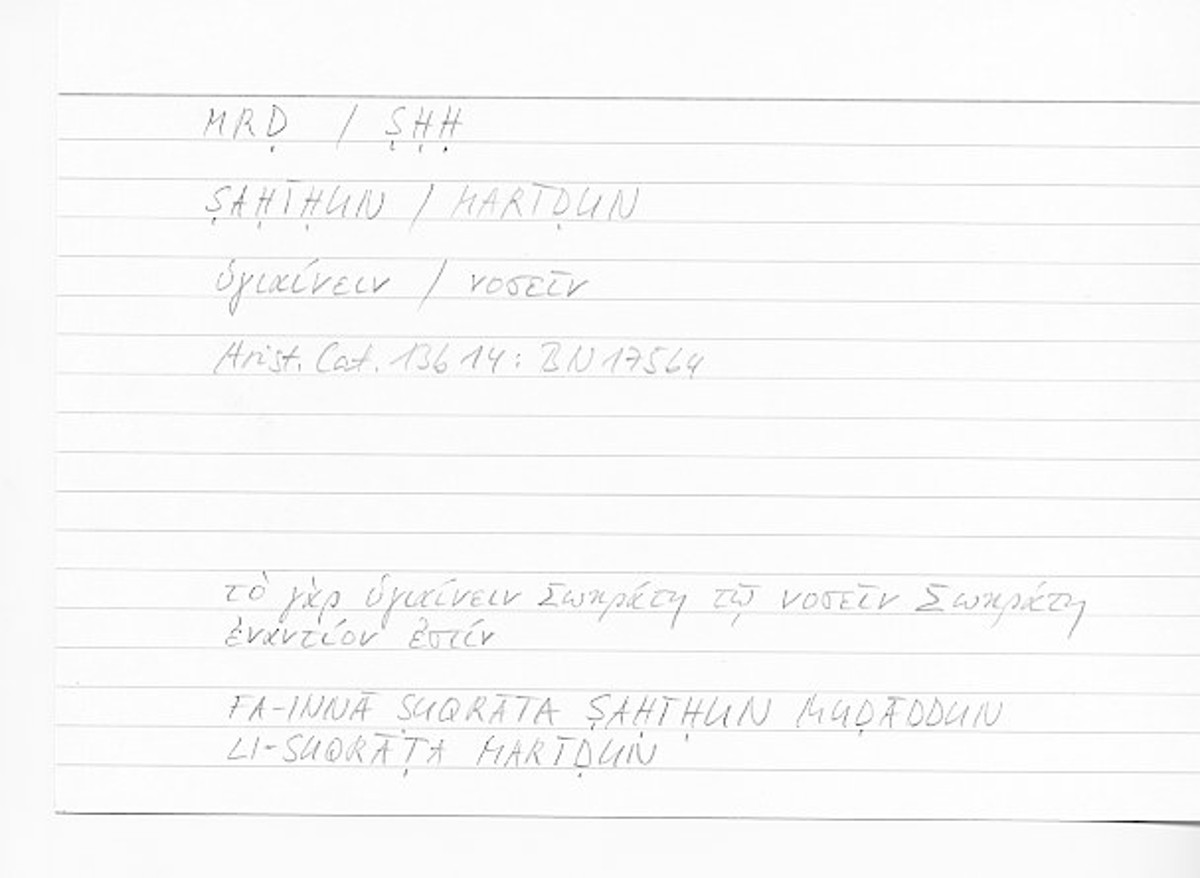 MRḌ / ṢḤḤ
ṢAḤĪḤUN / MARĪḌUN
ὑγιαίνειν / νοσεῖν
Arist. Cat. 13b14: BN 17564
τὸ γὰρ ὑγιαίνειν Σωκράτη τῷ νοσεῖν Σωκράτη
ἐναντίον ἐστίν
FA-INNA SUQRĀṬA ṢAḤĪḤUN MUḌĀDDUN
LI-SUQRĀṬA MARĪḌUN